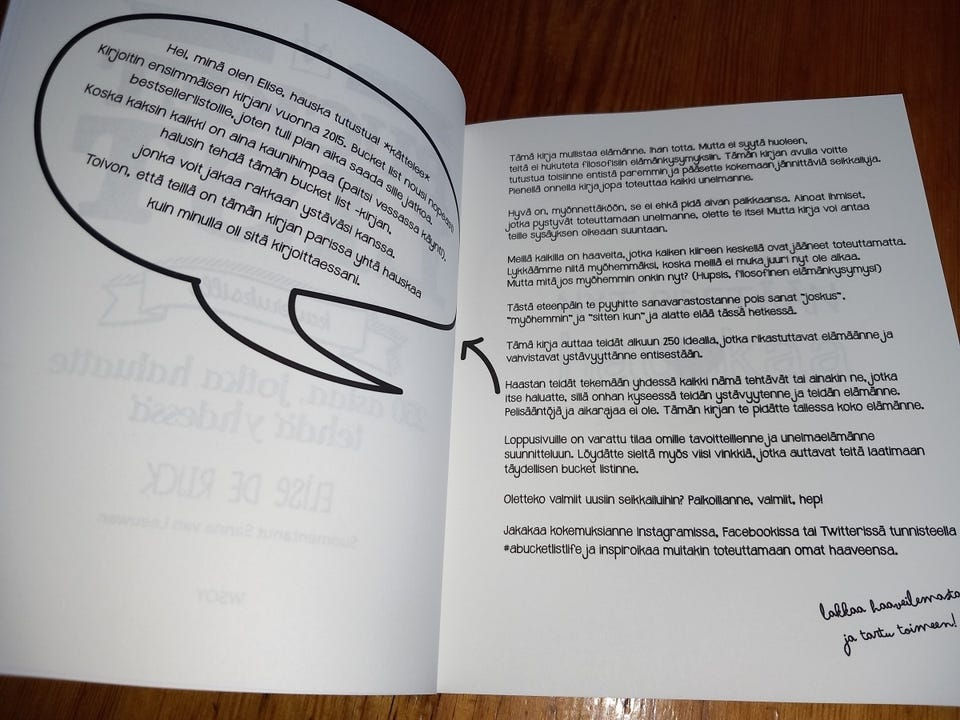 Hei, minä olen Elise, hauska tutustua! *kättelee*
Kirjoitin ensimmäisen kirjani vuonna 2015. Bucket list nousi nopeasti
bestsellerlistoille, joten tuli pian aika saada sille jatkoa.
Koska kaksin kaikki on aina kaunihimpaa (paitsi vessassa käynti),
halusin tehdä tämän bucket list -kirjan,
jonka voit jakaa rakkaan ystäväsi kanssa.
Toivon, että teillä on tämän kirjan parissa yhtä hauskaa
kuin minulla oli sitä kirjoittaessani.
kaveruksille
250 asiaa, jotka haluatte
tehdä yhdessä
ELISE DE RIJCK
Suomentanut Sanna van Leeuwen
WSOY
Tämä kirja mullistaa elämänne. Ihan totta. Mutta ei syytä huoleen,
teitä ei hukuteta filosofisiin elämänkysymyksiin. Tämän kirjan avulla voitte
tutustua toisiinne entistä paremmin ja pääsette kokemaan jännittäviä seikkailuja.
Pienellä onnella kirja jopa toteuttaa kaikki unelmanne.
Hyvä on, myönnettäköön, se ei ehkä pidä aivan paikkaansa. Ainoat ihmiset,
jotka pystyvät toteuttamaan unelmanne, olette te itse! Mutta kirja voi antaa
teille sysäyksen oikeaan suuntaan.
Meillä kaikilla on haaveita, jotka kaiken kiireen keskellä ovat jääneet toteuttamatta.
Lykkäämme niitä myöhemmäksi, koska meillä ei muka juuri nyt ole aikaa.
Mutta mitä jos myöhemmin onkin nyt? (Hupsis, filosofinen elämänkysymys!)
Tästä eteenpäin te pyyhitte sanavarastostanne pois sanat "joskus",
"myöhemmin" ja "sitten kun" ja alatte elää tässä hetkessä.
Tämä kirja auttaa teidät alkuun 250 idealla, jotka rikastuttavat elämäänne ja
vahvistavat ystävyyttänne entisestään.
Haastan teidät tekemään yhdessä kaikki nämä tehtävät tai ainakin ne, jotka
itse haluatte, sillä onhan kyseessä teidän ystävyytenne ja teidän elämänne.
Pelisääntöjä ja aikarajaa ei ole. Tämän kirjan te pidätte tallessa koko elämänne.
Loppusivuille on varattu tilaa omille tavoitteillenne ja unelmaelämänne
suunnitteluun. Löydätte sieltä myös viisi vinkkiä, jotka auttavat teitä laatimaan
täydellisen bucket listinne.
Oletteko valmiit uusiin seikkailuihin? Paikoillanne, valmiit, hep!
Jakakaa kokemuksianne Instagramissa, Facebookissa tai Twitterissä tunnisteella
#abucketlistlife ja inspiroikaa muitakin toteuttamaan omat haaveensa.
lakkaa haaveilemasta
ja tartu toimeen!